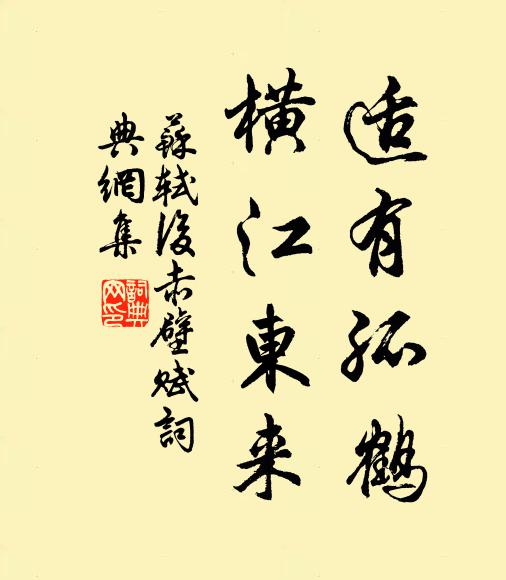 适有孤鶴
橫江東来
蘇軾後赤壁賦詞
典網集
詞典
网印